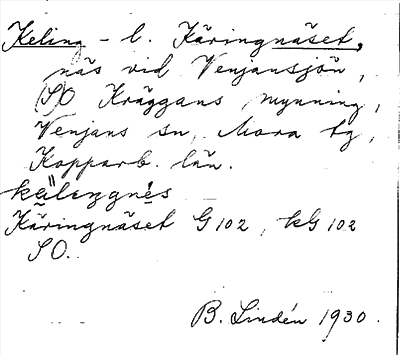 Keling - l. Käringnäset,
näs vid Venjansjön,
(S)O Kräggans mynning,
Venjans sn, Mora tg,
Kopparb. län.
Käringnäset G 102, kG 102
SO.
B. Lindén 1930.